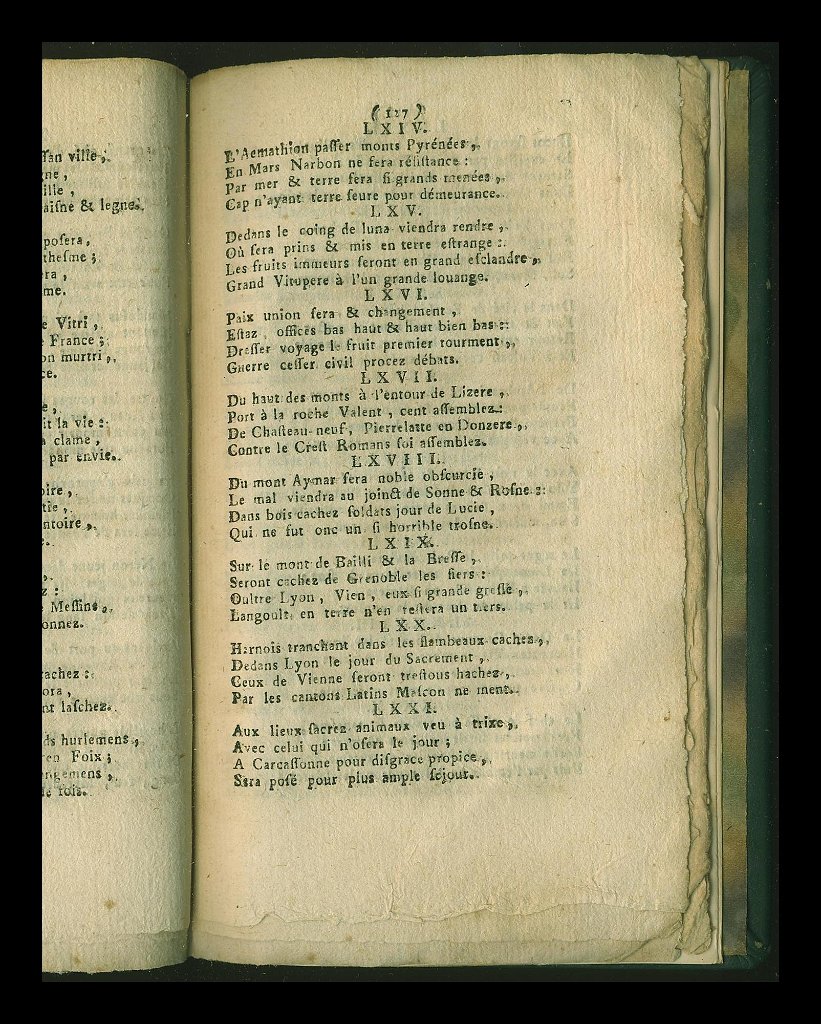 ſan ville,
gne,
ille,
aiſne & legne.
poſera,
theſme;
era,
me.
e Vitri,
e France;
on murtri,
ce.
e,
it la vie:
a clame,
par envie.
oire,
tie,
ntoire,
z:
Meſſins,
onnez.
rachez:
ora,
nt laſchez.
ds hurlemens,
en Foix;
ngemens,
le fois.
(127)
LXIV.
L'Aemathion paſſer monts Pyrénées,
En Mars Narbon ne ſera réſiſtance:
Par mer & terre ſera ſi grands menées,
Cap n'ayant terre ſeure pour démeurance.
LXV.
Dedans le coing de luna viendra rendre,
Où ſera prins & mis en terre eſtrange:
Les fruits immeurs ſeront en grand eſclandre,
Grand Vitupere à l'un grande louange.
LXVI.
Paix union ſera & changement,
Eſtaz, offices bas haut & haut bien bas:
Dreſſer voyage le fruit premier tourment,
Guerre ceſſer civil procez débats.
LXVII.
Du haut des monts à l'entour de Lizere,
Port à la roche Valent, cent aſſemblez:
De Chaſteau-neuf, Pierrelatte en Donzere,
Contre le Creſt Romans ſoi aſſemblez.
LXVIII.
Du mont Aymar ſera noble obſcurcie,
Le mal viendra au joinct de Sonne & Roſne:
Dans bois cachez ſoldats jour de Lucie,
Qui ne fut onc un ſi horrible troſne.
LXIX.
Sur le mont de Bailli & la Breſſe,
Seront cachez de Grenoble les fiers:
Oultre Lyon, Vien, eux ſi grande greſle,
Langoult en terre n'en reſtera un tiers.
LXX.
Harnois tranchant dans les flambeaux cachez,
Dedans Lyon le jour du Sacrement,
Ceux de Vienne ſeront treſtous hachez,
Par les cantons Latins Maſcon ne ment.
LXXI.
Aux lieux ſacrez animaux veu à trixe,
Avec celui qui n'oſera le jour;
A Carcaſſonne pour diſgrace propice,
Sera poſé pour plus ample ſejour.